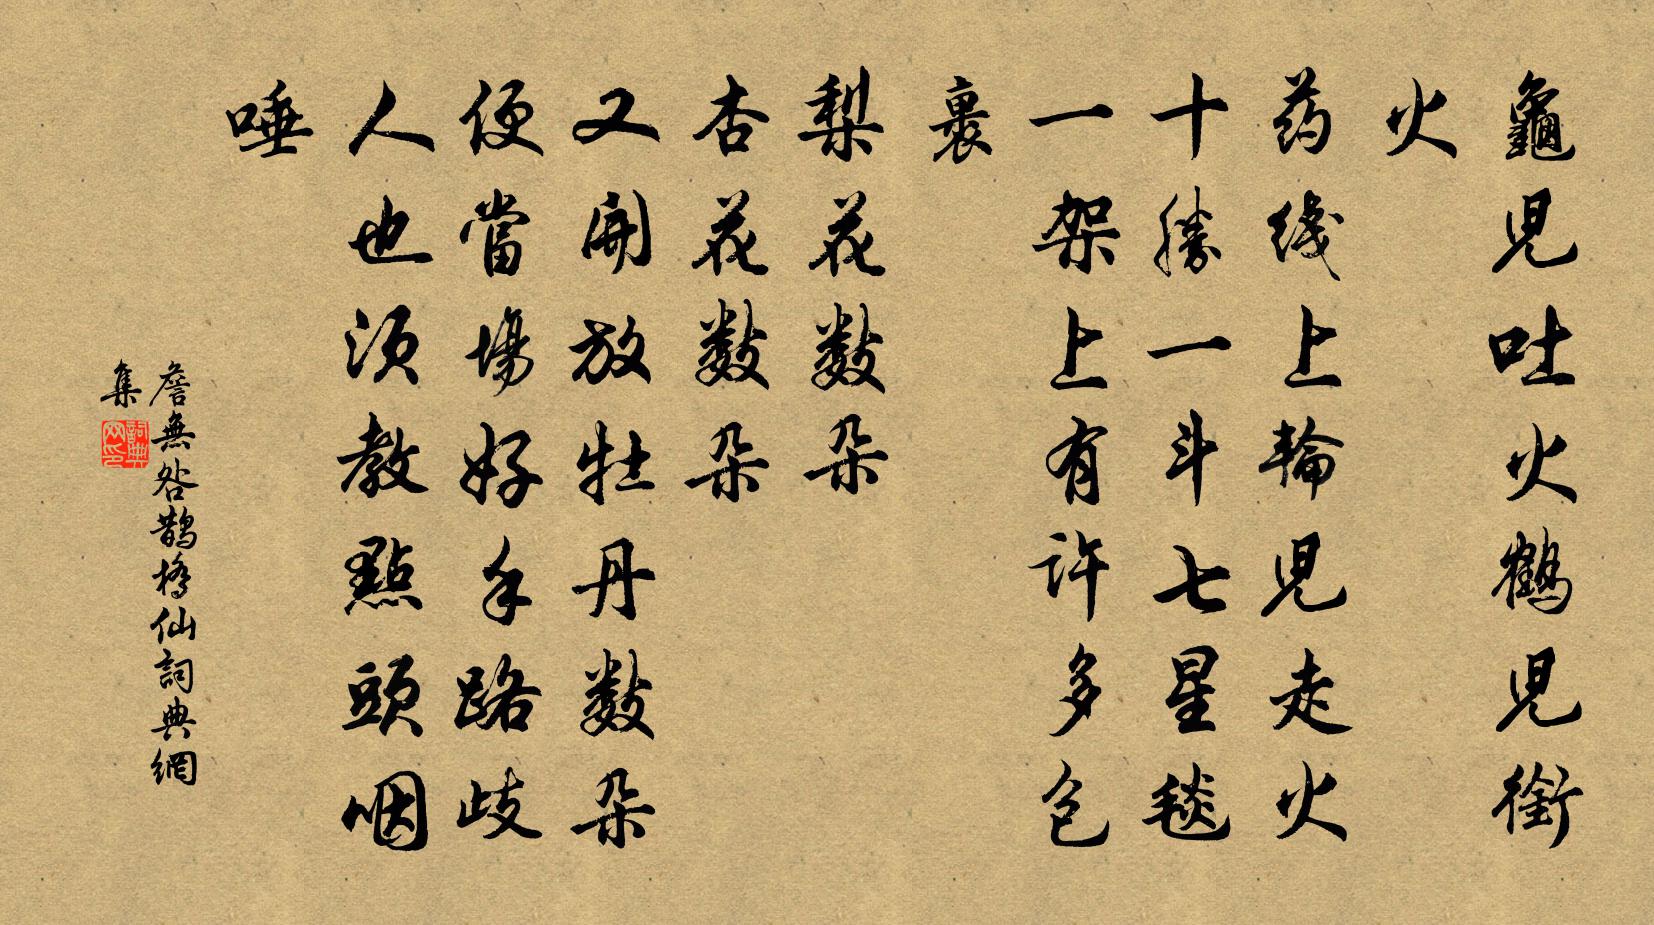 龜児吐火鶴児銜
火
药线上輪児走火
十勝一斗七星毯
一架上有許多包
裹
梨花數朵
杏花數朵
又開放牡丹數朵
便當場好手路歧
人也須教點頭咽
唾
詹無咎鵲橋仙詞典網
集
詞典網印